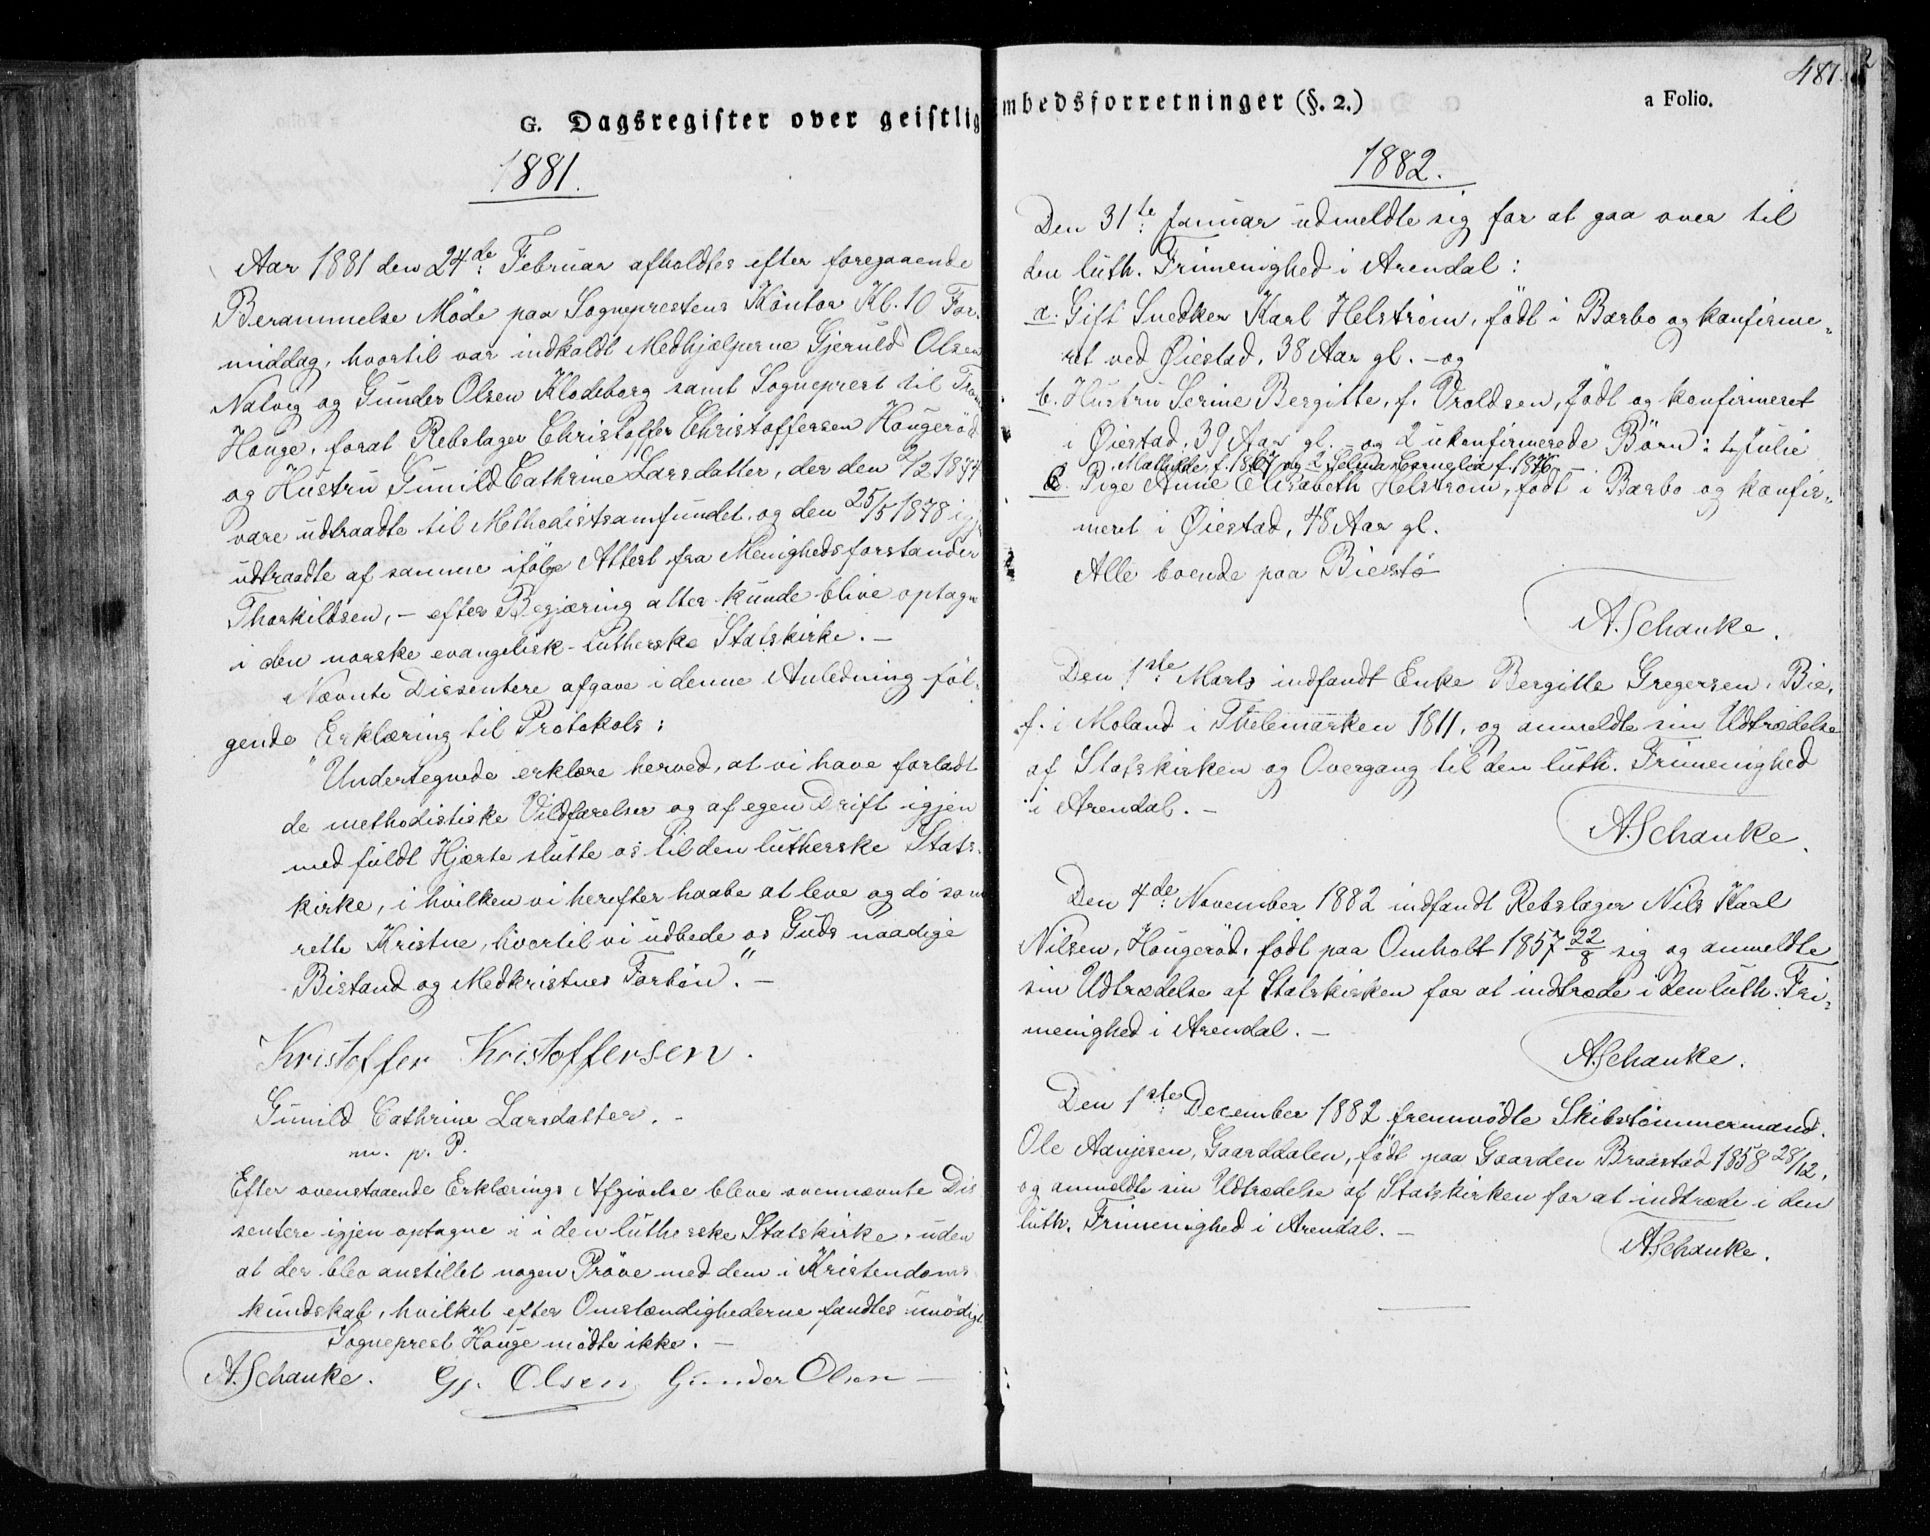 G. Dagsregister over geistlig
1881.
Aar 1881 den 24de Februar afholdtes efter foregaaende
Berammelse Møde paa Sogneprestens Kontor Kl. 10 For-
middag, hvortil var indkaldt Medhjælperne Gjeruld Olsen
Natvig og Gunder Olsen Klodeborg samt Sogneprest til
Houge, forat Rebslager Christoffer Christoffersen Hougerød
og Hustru Gunild Cathrine Larsdatter, der den 2/2 1874
vare udtraadte til Methodistsamfundet, og den 25/5 1878
udtraadte af samme ifølge Attest fra Menighedsforstander
Thorkildsen, – efter Begjæring atter kunde blive optagne
i den norske evangelisk-lutherske Statskirke. –
Nævnte Dissentere afgave i denne Anledning føl-
gende Erklæring til Protokols:
"Undertegnede erklære herved, at vi have forladt
de methodistiske Vildfarelser og af egen Drift igjen
med fuldt Hjerte slutte os til den lutherske Stats-
kirke, i hvilken vi herefter haabe at leve og dø som
rette Kristne, hvortil vi udbede os Guds naadige
Bistand og Medkristnes Forbøn." –
Kristoffer Kristoffersen.
Gunild Cathrine Larsdatter. –
m. p. P.
Efter ovenstaaende Erklærings Afgivelse bleve ovennævnte Dis
sentere igjen optagne i i den lutherske Statskirke, uden
at der blev anstillet nogen Prøve med dem i Kristendoms
kundskab, hvilket efter Omstændighederne fandtes unødigt
Sogneprest Houge mødte ikke. –
A. Schanke. Gj. Olsen Gunder Olsen
mbedsforretninger (§. 2.)
a Folio.
487
1882.
Den 31te Januar udmeldte sig for at gaa over til
den luth. Frimenighed i Arendal:
a. Gift Snedker Karl Helstrøm, født i Barbo og konfirme-
ret ved Øiestad, 38 Aar gl. – og
b. Hustru Serine Bergitte, f. Oroldsen, født og konfirmeret
i Øiestad, 39 Aar gl. – og 2 ukonfirmerede Børn: 1, Julie
Mathilde f. 1867 og 2 Selma Cornelia f. 1876 –
c. Pige Anne Elisabeth Helstrøm, født i Barbo og konfir-
meret i Øiestad, 48 Aar gl.
Alle boende paa Bierstø
A. Schanke.
Den 1ste Marts indfandt Enke Bergitte Gregersen, Bie,
f. i Moland i Thelemarken 1811, og anmeldte sin Udtrædelse
af Statskirken og Overgang til den luth. Frimenighed
i Arendal. –
A. Schanke.
Den 4de November 1882 indfandt Rebslager Nils Karl
Nilsen, Hougerød, født paa Omholt 1857 22/8 sig og anmeldte
sin Udtrædelse af Statskirken for at indtræde i den luth. Fri-
menighed i Arendal. –
A. Schanke.
Den 1ste December 1882 fremmødte Skibstømmermand
Ole Aanjesen, Gaarddalen, født paa Gaarden Braastad 1858 28/12,
og anmeldte sin Udtrædelse af Statskirken for at indtræde i den
luth. Frimenighed i Arendal. –
A. Schanke.